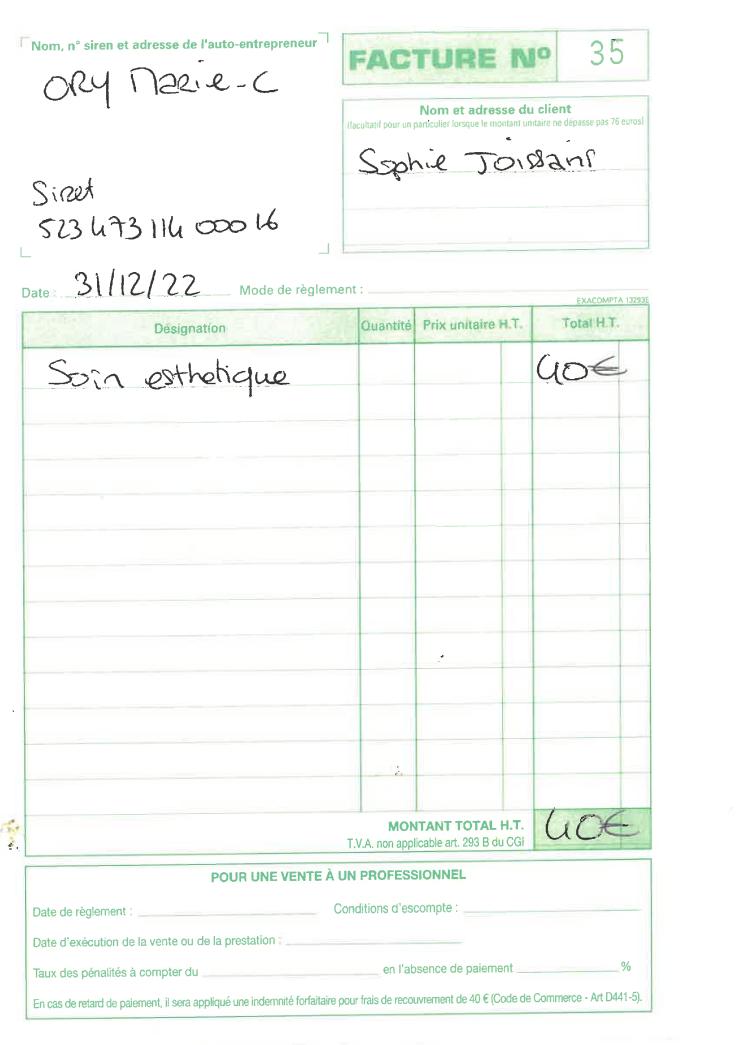 Nom, n° siren et adresse de l'auto-entrepreneur
ORY Marie-C
Siret
523 473 114 00016
FACTURE N° 35
Nom et adresse du client
(facultatif pour un particulier lorsque le montant unitaire ne dépasse pas 76 euros)
Sophie Joissains
Date : 31/12/22 Mode de règlement :
EXACOMPTA 13293E
Désignation Quantité Prix unitaire H.T. Total H.T.
Soin esthetique 40€
MONTANT TOTAL H.T. 40€
T.V.A. non applicable art. 293 B du CGI
POUR UNE VENTE À UN PROFESSIONNEL
Date de règlement : Conditions d'escompte :
Date d'exécution de la vente ou de la prestation :
Taux des pénalités à compter du en l'absence de paiement %
En cas de retard de paiement, il sera appliqué une indemnité forfaitaire pour frais de recouvrement de 40 € (Code de Commerce - Art D441-5).